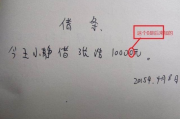 借条
今王小静借张浩10000元。
2015年9月8日